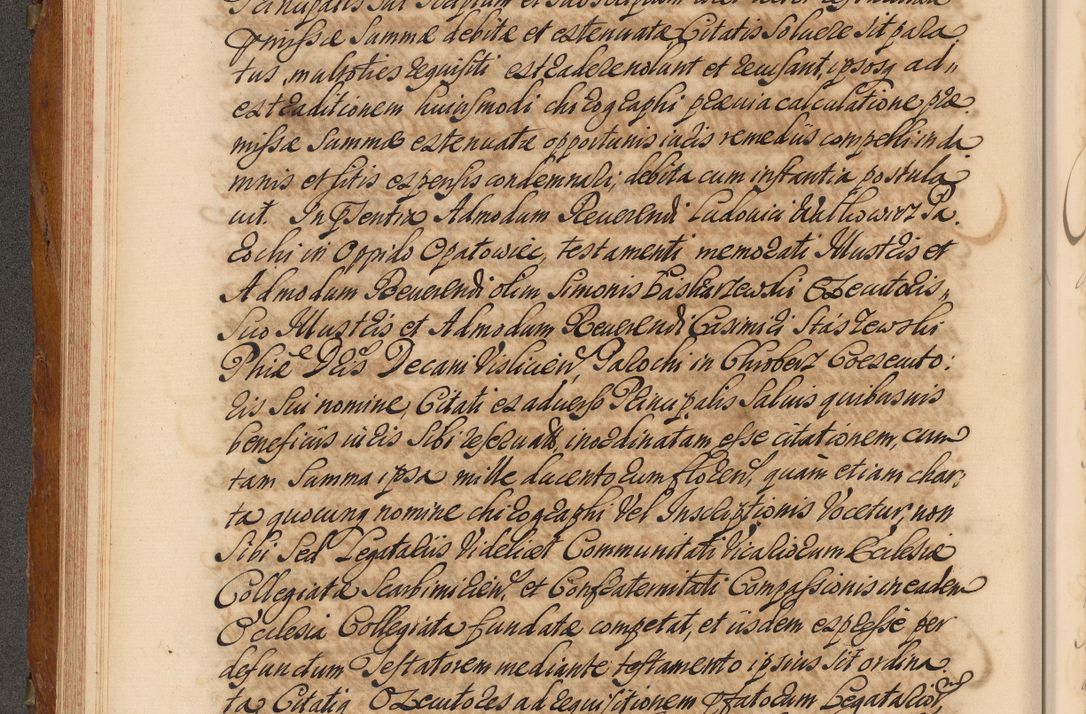 Principalis sui scriptum et subscriptum
præmissæ summæ debitæ et extenuatæ Citatis soluere sit para
tus, multoties requisiti extradere nolunt et recusant, ipsosq ad„
extraditionem huiusmodi chirographi præuia calculatione præ
missæ summæ extenuatæ opportunis iuris remediis compelli in da
mnis et litis expensis condemnari; debita cum instantia postula
uit. In Psentia Admodum Reuerendi Ludouici Walkowicz Pa
rochi in Oppido Opatowiec, testamenti memorati Illustris et
Admodum Reuerendi olim Simonis Paskarzewski Executoris„
Suo Illustris et Admodum Reuerendi Casimiri Staszewski
Phiæ Dris Decani Visliciens Parochi in Chroberz Coexecuto:
ris sui nomine, Citati ex aduerso Principalis saluis quibusuis
beneficiis iuris sibi reseruatis, inordinatam esse citationem, cum
tam summa ipsa mille ducentorum floren, quam etiam char
ta quocunq nomine chirographi vel Inscriptionis vocetur, non
sibi sed Legatariis videlicet Communitati Vicariorum Ecclesiæ
Collegiatæ Scarbimirien, et Confraternitati Compassionis in eadem
Ecclesia Collegiata fundatæ competat, et iisdem expresse per
defunctum Testatorem mediante testamento ipsius sit ordina
ta Citatiq Executores ad requisitionem Pfatorum Legatarior,